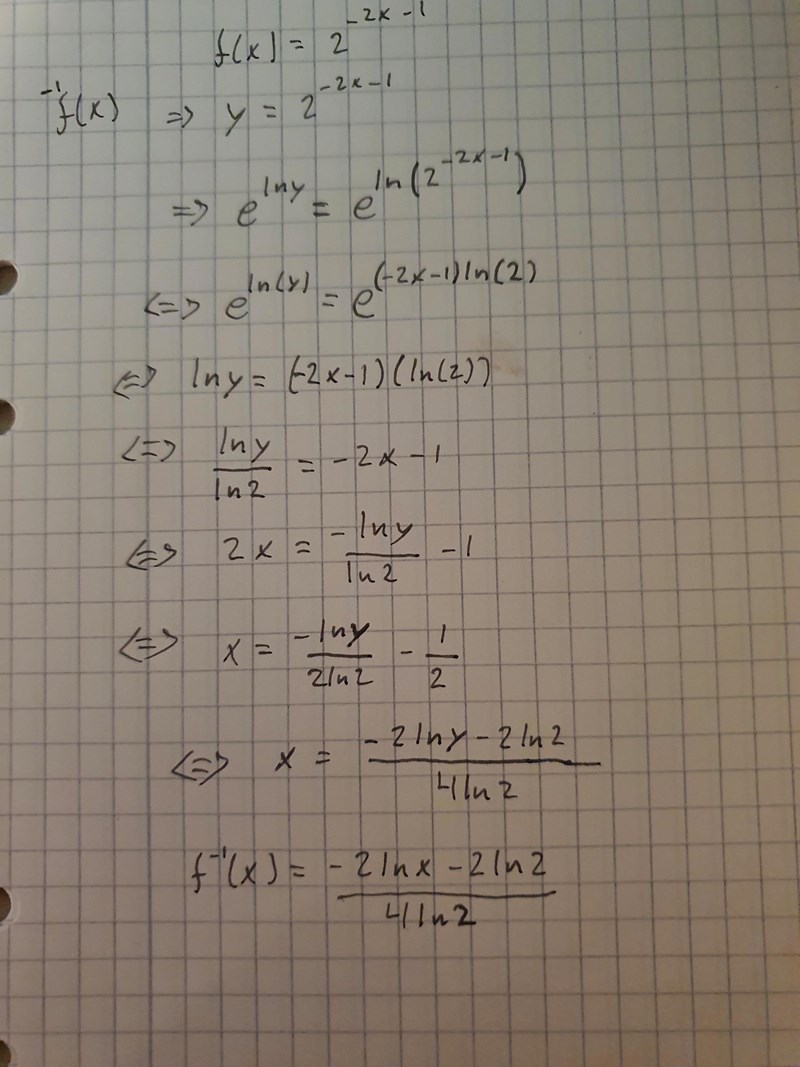 f(x) = 2^{-2x-1}
^{-1}f(x) => y = 2^{-2x-1}
=> e^{ln y} = e^{ln(2^{-2x-1})}
<=> e^{ln(y)} = e^{(-2x-1)ln(2)}
<=> ln y = (-2x-1)(ln(2))
<=> \frac{ln y}{ln 2} = -2x-1
<=> 2x = \frac{-ln y}{ln 2} - 1
<=> x = \frac{-ln y}{2 ln 2} - \frac{1}{2}
<=> x = \frac{-2 ln y - 2 ln 2}{4 ln 2}
f^{-1}(x) = \frac{-2 ln x - 2 ln 2}{4 ln 2}